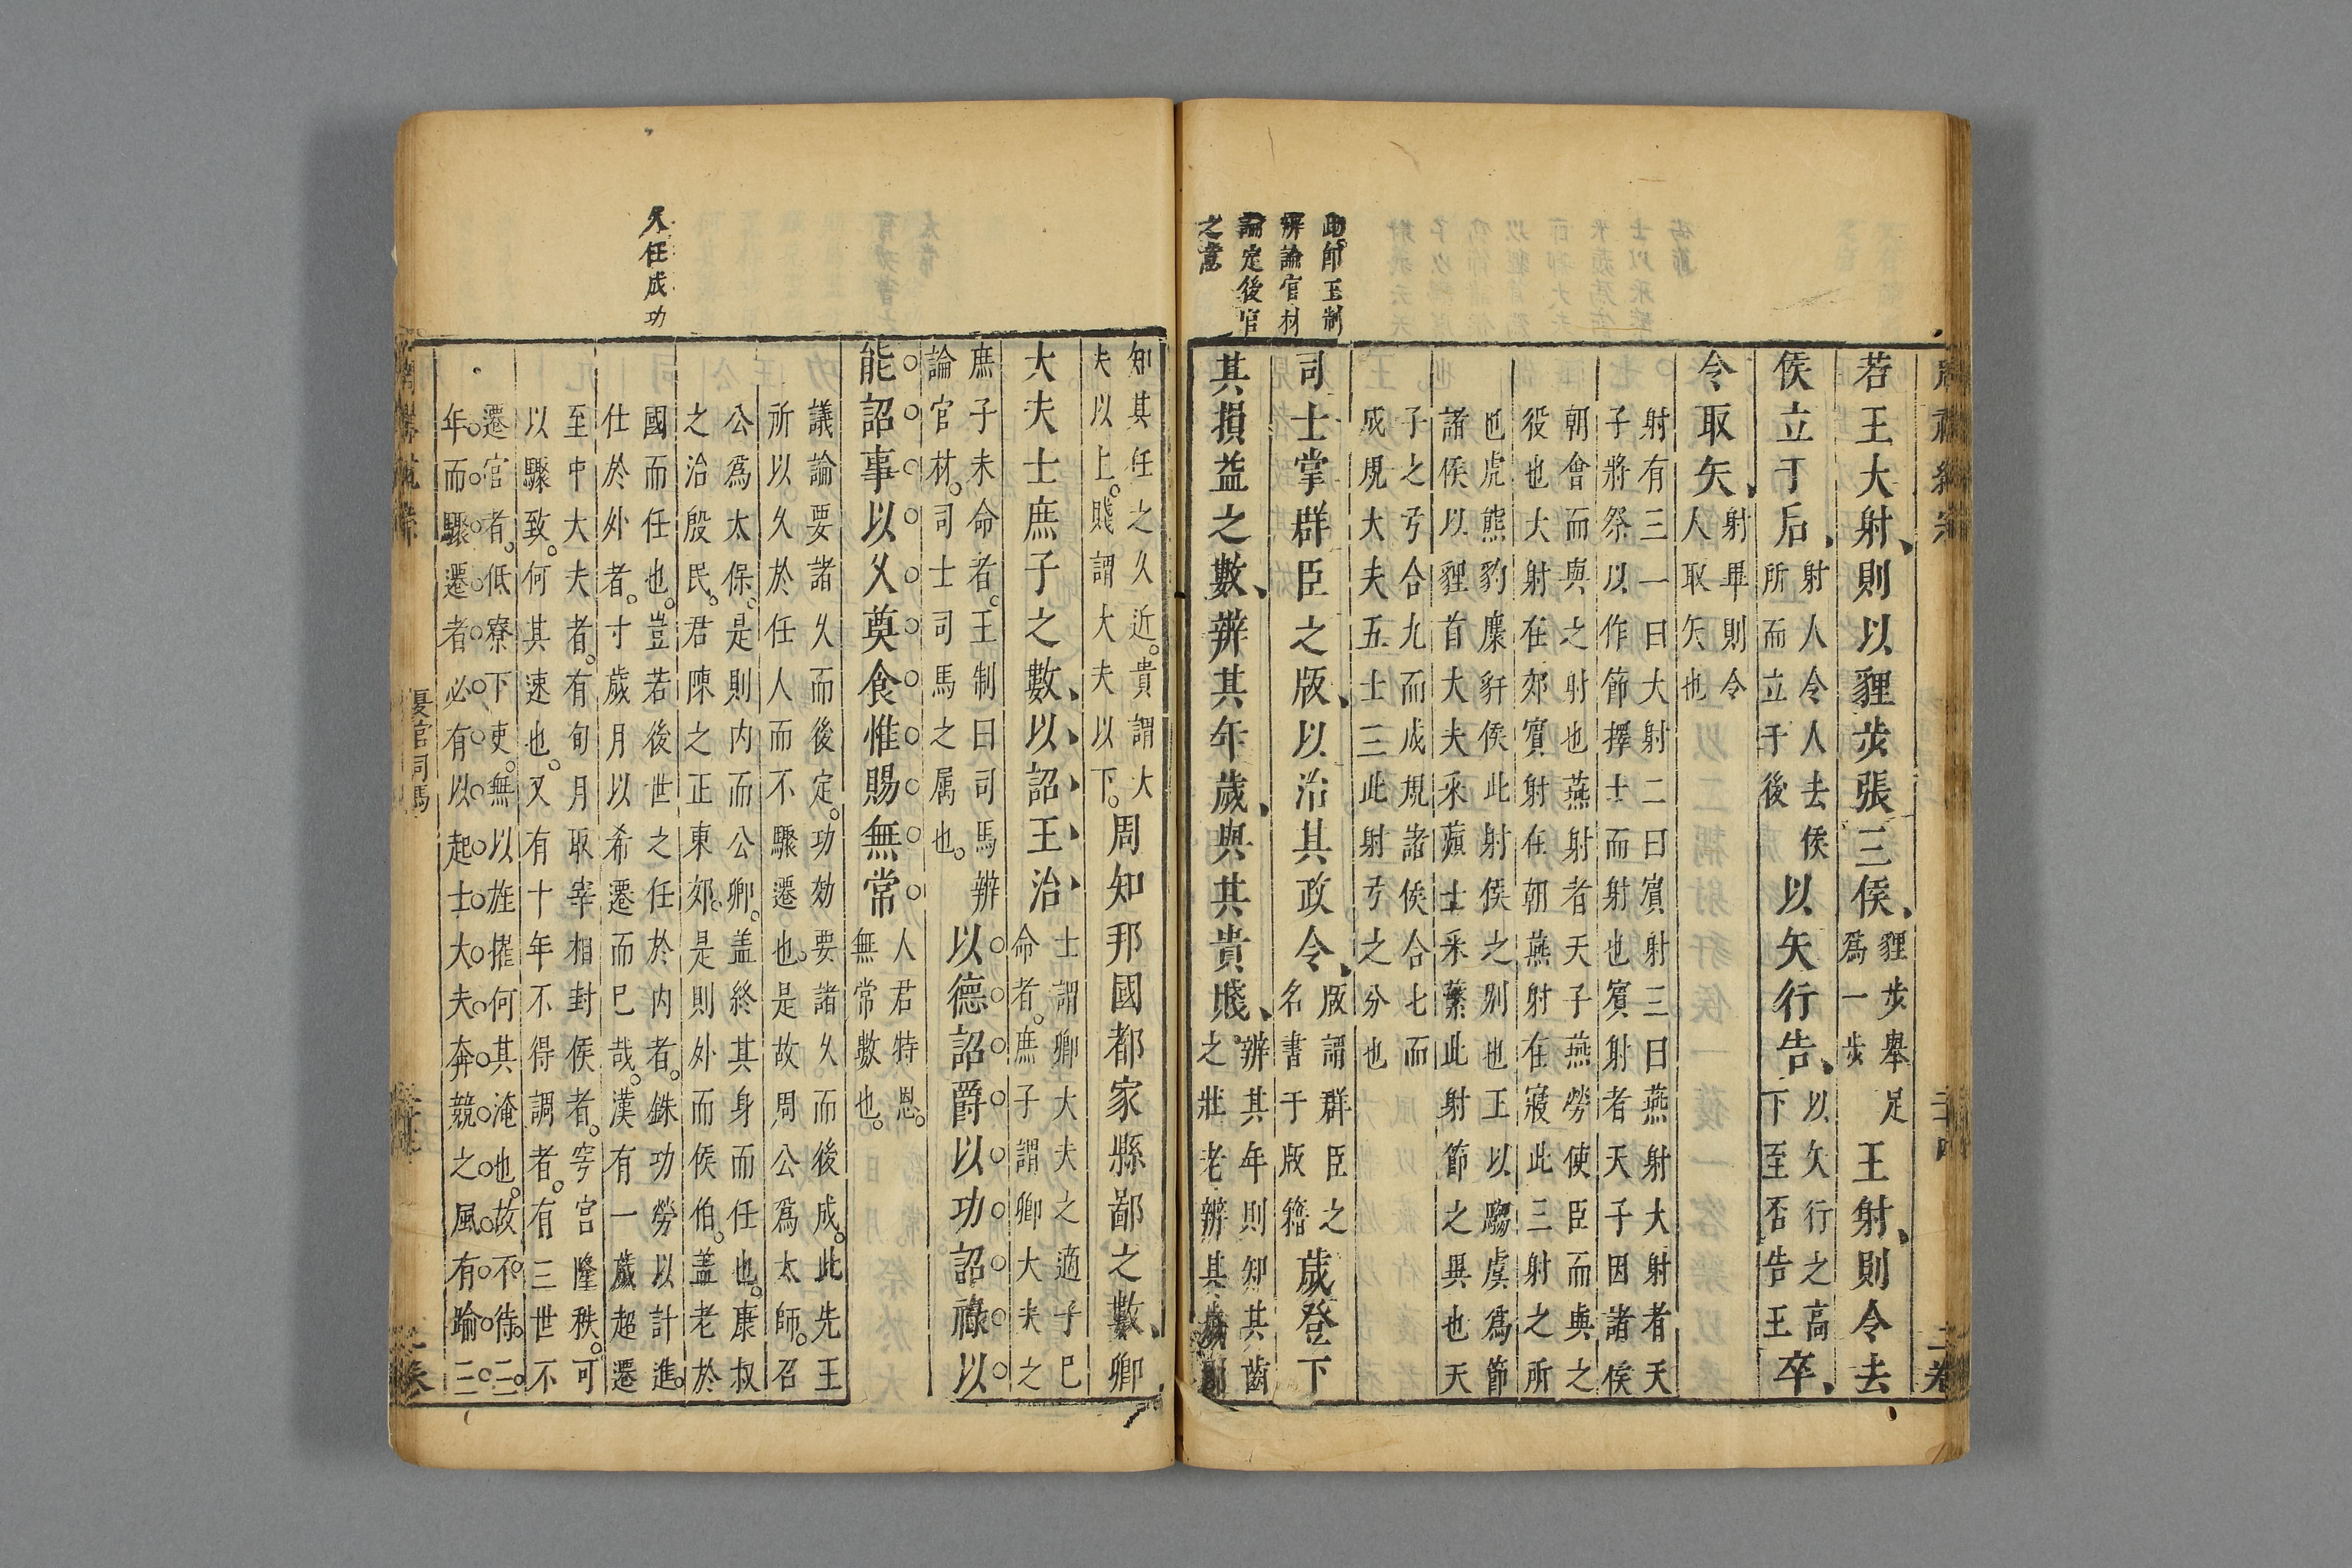 若王大射則以貍步張三侯貍步舉足爲一步王射則令去
侯立于后射人令人去侯所而立于後以矢行告以矢行之高下至否告王卒
令取矢射畢則令人取矢也
射有三一曰大射二曰賓射三曰燕射大射者天
子將祭以作節擇士而射也賓射者天子因諸侯
朝會而與之射也燕射者天子燕勞使臣而與之
役也大射在郊賓射在朝燕射在寢此三射之所
也虎熊豹麋豻侯此射侯之別也王以騶虞爲節
諸侯以貍首大夫采蘋士采蘩此射節之異也天
子之弓合九而成規諸侯合七而
成規大夫五士三此射弓之分也
司士掌群臣之版以治其政令版謂群臣之名書于版籍歲登下
其損益之數辨其年歲與其貴賤辨其年則知其齒之壯老辨其歲則
助師王制
辨論官材
論定後官
之意
知其任之久近貴謂大夫以上賤謂大夫以下周知邦國都家縣鄙之數卿
大夫士庶子之數以詔王治士謂卿大夫之適子已命者庶子謂卿大夫之
庶子未命者王制曰司馬辨論官材司士司馬之属也以德詔爵以功詔祿以
能詔事以久奠食惟賜無常人君特恩無常數也
議論要諸久而後定功効要諸久而後成此先王
所以久於任人而不驟遷也是故周公爲太師召
公爲太保是則内而公卿盖終其身而任也康叔
之治殷民君陳之正東郊是則外而侯伯盖老於
國而任也豈若後世之任於内者銖功勞以計進
仕於外者寸歲月以希遷而巳哉漢有一歲超遷
至中大夫者有旬月取宰相封侯者穹官隆秩可
以驟致何其速也又有十年不得調者有三世不
遷官者低寮下吏無以旌擢何其淹也故不待三
年而驟遷者必有以起士大夫奔競之風有踰三
久任成功
夏官司馬